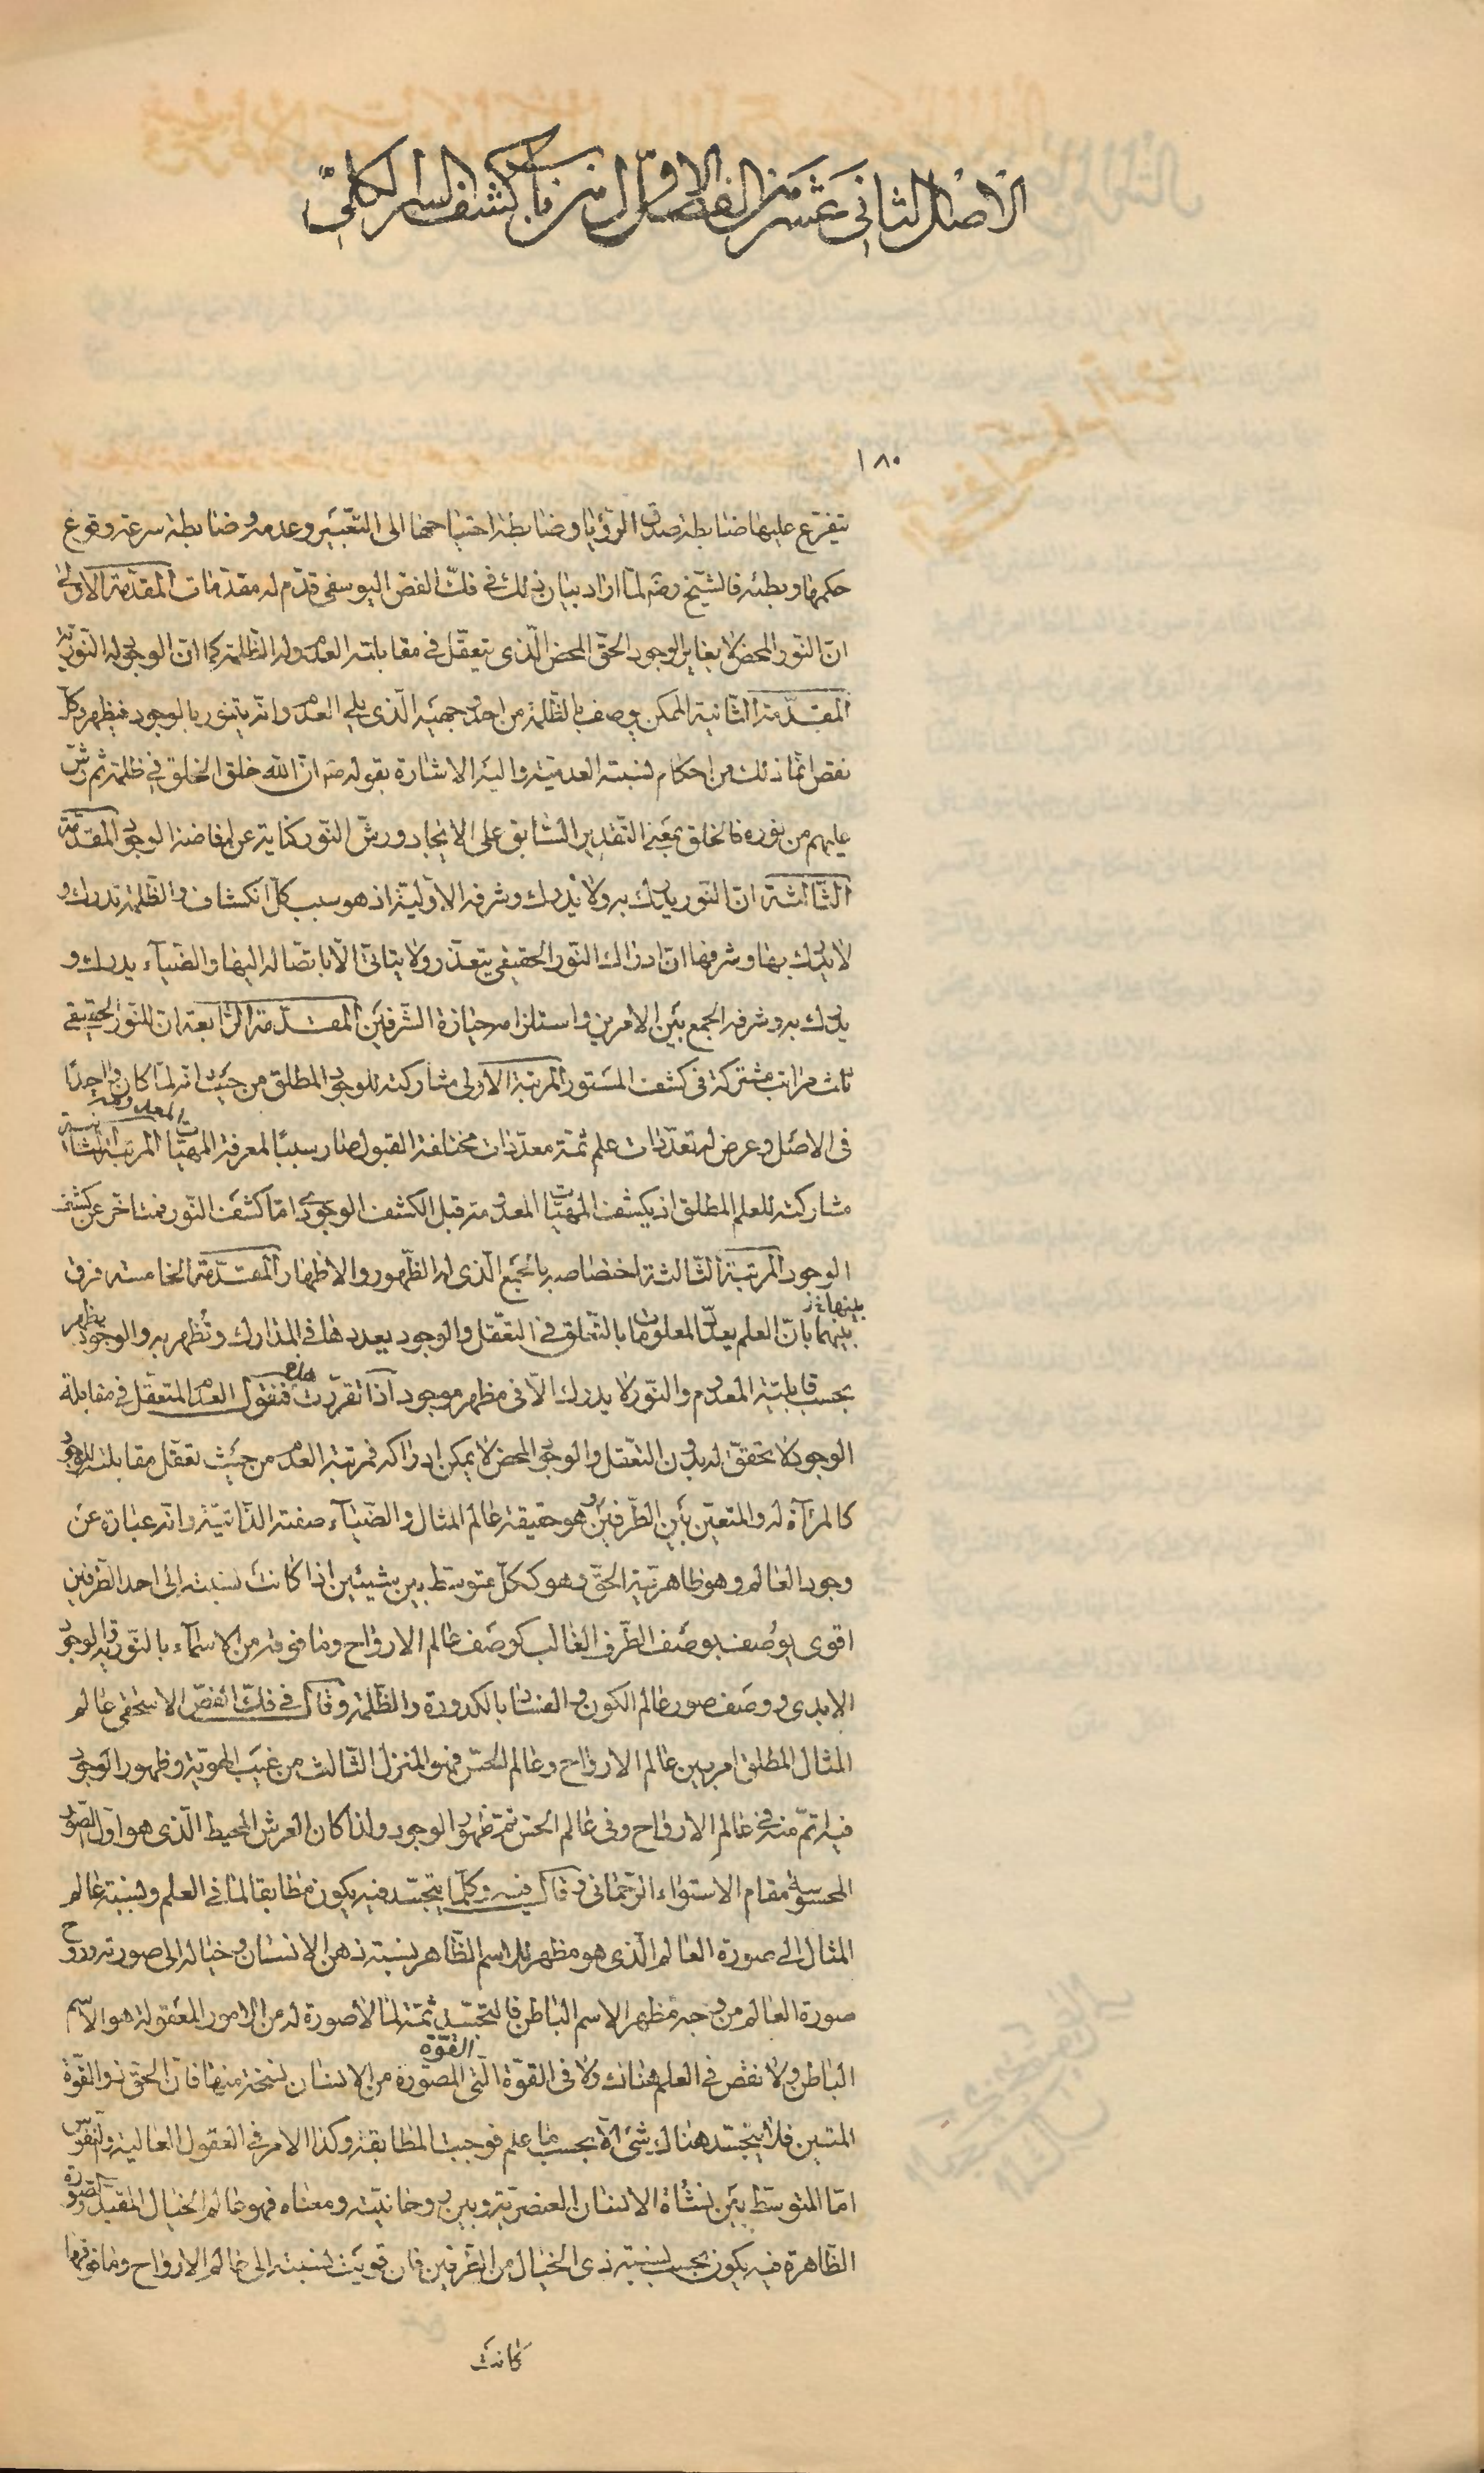 الاصل الثاني عشر من الفصل الاول من باب كشف السر الكلي
١٨٠
يتفرع عليها ضابطة صدق الرؤيا وضابطة احتياجها الى التعبير وعدمه وضابطة سرعة وقوع
حكمها وبطئه فالشيخ رضه لما اراد بيان ذلك في فك الفص اليوسفى قدم له مقدمات المقدمة الاولى
ان النور المحض لا يغاير الوجود الحق المحض الذى يتعقل فى مقابلته العدم وله الظلمة كما ان الوجود له النورية
المقدمة الثانية الممكن يوصف بالظلمة من احد وجهيه الذى يلي العدم وانه يتنور بالوجود فيظهر وكل
نقص انما ذلك من احكام نسبته العدمية واليه الاشارة بقوله صه ان الله خلق الخلق في ظلمة ثم رش
عليهم من نوره فالخلق بمعنى التقدير السابق على الايجاد ورش النور كناية عن افاضة الوجود المقدمة
الثالثة ان النور يدرك به ولا يدرك وشرفه الاولية اذ هو سبب كل انكشاف والظلمة تدرك و
لا يدرك بها وشرفها ان ادراك النور الحقيقي يتعذر ولا يتاتى الا باتصاله اليها والضياء يدرك و
يدرك به وشرفه الجمع بين الامرين واستلزامه حيازة الشرفين المقدمة الرابعة ان للنور الحقيقي
ثلث مراتب مشتركة فى كشف المستور المرتبة الاولى مشاركته للوجود المطلق من حيث انه لما كان واحدا
فى الاصل وعرض له تعددات علم ثمة معددات مختلفة القبول صار سببا لمعرفة المهيات المعدومة المرتبة الثانية
مشاركته للعلم المطلق اذ يكشف المهيات المعدومة قبل الكشف الوجودى اما كشف النور فمتاخر عن كشف
الوجود المرتبة الثالثة اختصاصه بالجمع الذى له الظهور والاظهار المقدمة الخامسة فرق
بينها خ
بينهما بان العلم يعدد المعلومات بالتعلق فى التعقل والوجود يعددها فى المدارك وتظهر به والوجود يظهر
بحسب قابلية المعدوم والنور لا يدرك الا فى مظهر موجود اذا تقررت هذه فنقول العدم المتعقل فى مقابلة
الوجود لا تحقق له بدون التعقل والوجود المحض لا يمكن ادراكه فمرتبة العدم من حيث تعقل مقابلته للوجود
كالمرآة له والمتعين بين الطرفين هو حقيقة عالم المثال والضياء صفته الذاتية وانه عبارة عن
وجود العالم وهو ظاهرية الحق وهو ككل متوسط بين شيئين اذا كانت نسبته الى احد الطرفين
اقوى يوصف بوصف الطرف الغالب كوصف عالم الارواح وما فوقه من الاسماء بالنورية والوجود
الابدى ووصف صور عالم الكون والفساد بالكدورة والظلمة وقال في فك الفص الاسحقى عالم
المثال المطلق امر بين عالم الارواح وعالم الحس فهو المنزل الثالث من غيب الهوية وظهور الوجود
فيه اتم منه في عالم الارواح وفى عالم الحس تم ظهور الوجود ولذا كان العرش المحيط الذى هو اول الصور
المحسوسة مقام الاستواء الرحمانى وقال فيه وكلما يتجسد فيه يكون مطابقا لما في العلم ونسبة عالم
المثال الى صورة العالم الذى هو مظهر للاسم الظاهر نسبة ذهن الانسان وخياله الى صورته وروح
صورة العالم من وجه مظهر الاسم الباطن فالتجسد ثمة لما لا صورة له من الامور المعقولة هو الاسم
الباطن ولا نقص في العلم هناك ولا فى القوة التى القوة المصورة من الانسان نسخة منها فان الحق ذو القوة
المتين فلا يتجسد هناك شئ الا بحسب ما علم فوجبت المطابقة وكذا الامر فى العقول العالية والنفوس
اما المتوسط بين نشأة الانسان العنصرية وبين روحانيته ومعناه فهو عالم الخيال المقيد والصورة
الظاهرة فيه يكون بحسب نسبة ذى الخيال من الطرفين فان قويت نسبته الى عالم الارواح وما فوقها
كانت